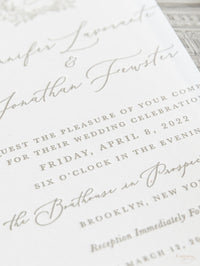 nnifer Lavorante
&
Jonathan Fewster
UEST THE PLEASURE OF YOUR COMP
FOR THEIR WEDDING CELEBRATION
FRIDAY, APRIL 8, 2022
SIX O'CLOCK IN THE EVENING
the Boathouse in Prospec
BROOKLYN, NEW YOR
Reception Immediately Fol
MARCH 12, 20